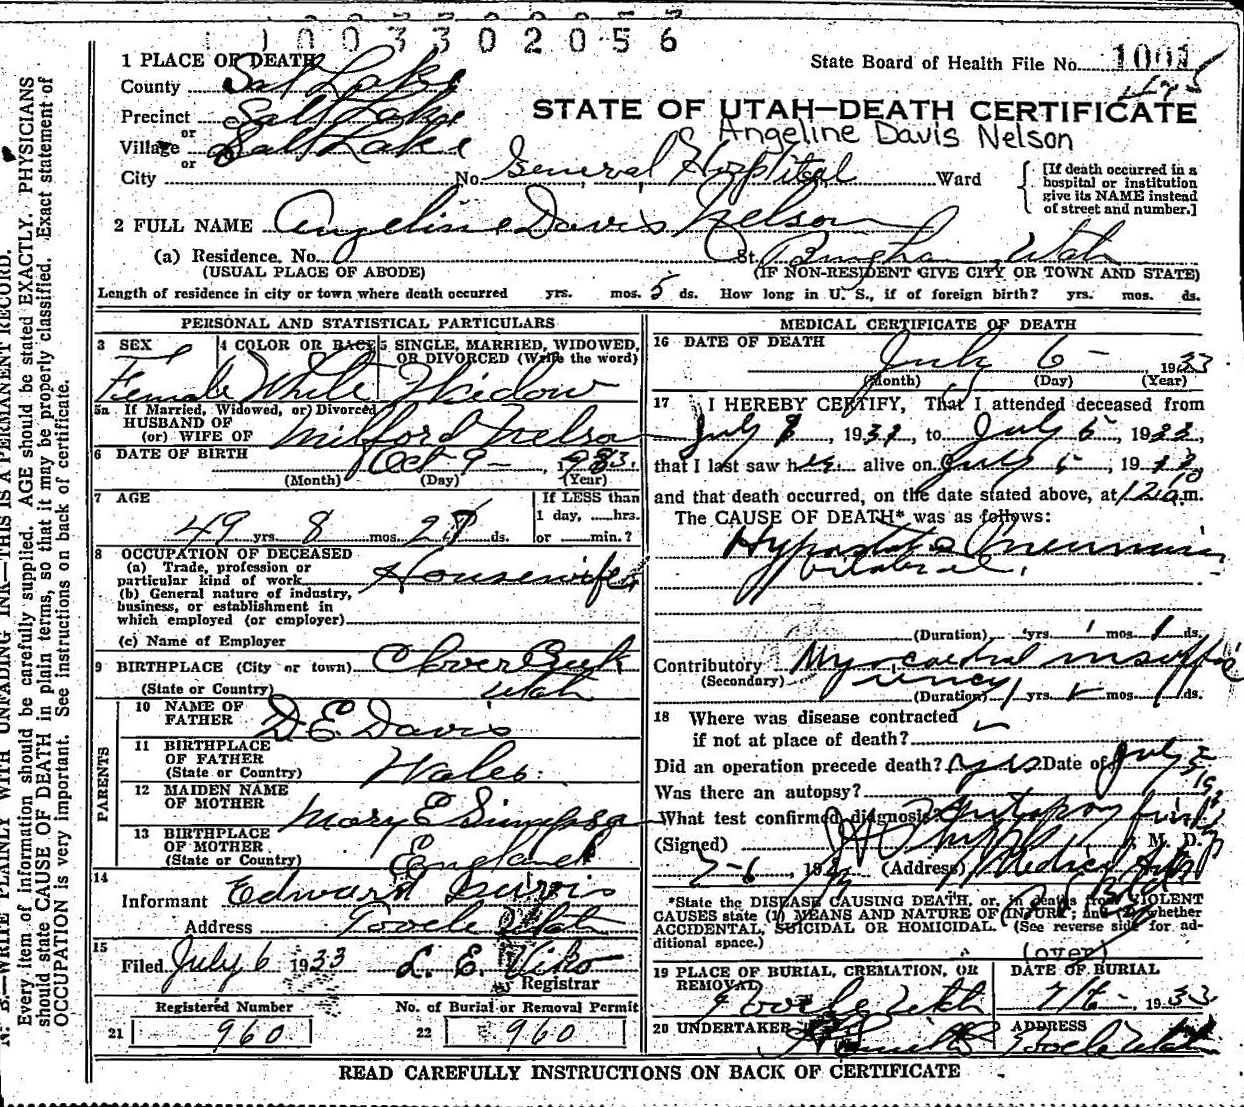 1003302056
1 PLACE OF DEATH
State Board of Health File No. 1001
County Salt Lake
Precinct Salt Lake
STATE OF UTAH—DEATH CERTIFICATE
or
Angeline Davis Nelson
Village Salt Lake
or
City No. General Hospital Ward
[If death occurred in a
hospital or institution
give its NAME instead
of street and number.]
2 FULL NAME Angeline Davis Nelson
(a) Residence. No. St. Bingham Utah
(USUAL PLACE OF ABODE) (IF NON-RESIDENT GIVE CITY OR TOWN AND STATE)
Length of residence in city or town where death occurred yrs. mos. 5 ds. How long in U. S., if of foreign birth? yrs. mos. ds.
PERSONAL AND STATISTICAL PARTICULARS
3 SEX 4 COLOR OR RACE 5 SINGLE, MARRIED, WIDOWED,
OR DIVORCED (Write the word)
Female White Widow
5a If Married, Widowed, or Divorced
HUSBAND OF
(or) WIFE OF Milford Nelson
6 DATE OF BIRTH Oct 9 - 1883
(Month) (Day) (Year)
7 AGE If LESS than
1 day, hrs.
49 yrs. 8 mos. 27 ds. or min.?
8 OCCUPATION OF DECEASED
(a) Trade, profession or
particular kind of work Housewife
(b) General nature of industry,
business, or establishment in
which employed (or employer)
(c) Name of Employer
9 BIRTHPLACE (City or town) Clover Creek
(State or Country) Utah
PARENTS
10 NAME OF
FATHER D. E. Davis
11 BIRTHPLACE
OF FATHER
(State or Country) Wales
12 MAIDEN NAME
OF MOTHER Mary E Simpson
13 BIRTHPLACE
OF MOTHER
(State or Country) England
14
Informant Edward
Address Tooele Utah
15
Filed July 6 1933 L. E. Viko
Registrar
Registered Number No. of Burial or Removal Permit
21 960 22 960
MEDICAL CERTIFICATE OF DEATH
16 DATE OF DEATH
July 6 - 1933
(Month) (Day) (Year)
17 I HEREBY CERTIFY, That I attended deceased from
July , 19 , to July , 1933,
that I last saw her alive on July , 19
and that death occurred, on the date stated above, at m.
The CAUSE OF DEATH* was as follows:
Hypostatic Pneumonia
bilateral.
(Duration) yrs. mos. ds.
Contributory Myocardial insuffic
(Secondary) iency
(Duration) yrs. mos. ds.
18 Where was disease contracted
if not at place of death?
Did an operation precede death? yes Date of July 5
Was there an autopsy?
What test confirmed diagnosis? Autopsy
(Signed) , M. D.
7-6, 19 (Address) Medical Arts
Bld
*State the DISEASE CAUSING DEATH, or, in deaths from VIOLENT
CAUSES state (1) MEANS AND NATURE OF INJURY; and (2) whether
ACCIDENTAL, SUICIDAL OR HOMICIDAL. (See reverse side for ad-
ditional space.)
(over)
19 PLACE OF BURIAL, CREMATION, OR
REMOVAL
Tooele Utah
DATE OF BURIAL
1933
20 UNDERTAKER
ADDRESS
Tooele Utah
READ CAREFULLY INSTRUCTIONS ON BACK OF CERTIFICATE
N. B.—WRITE PLAINLY WITH UNFADING INK—THIS IS A PERMANENT RECORD.
Every item of information should be carefully supplied. AGE should be stated EXACTLY. PHYSICIANS
should state CAUSE OF DEATH in plain terms, so that it may be properly classified. Exact statement of
OCCUPATION is very important. See instructions on back of certificate.